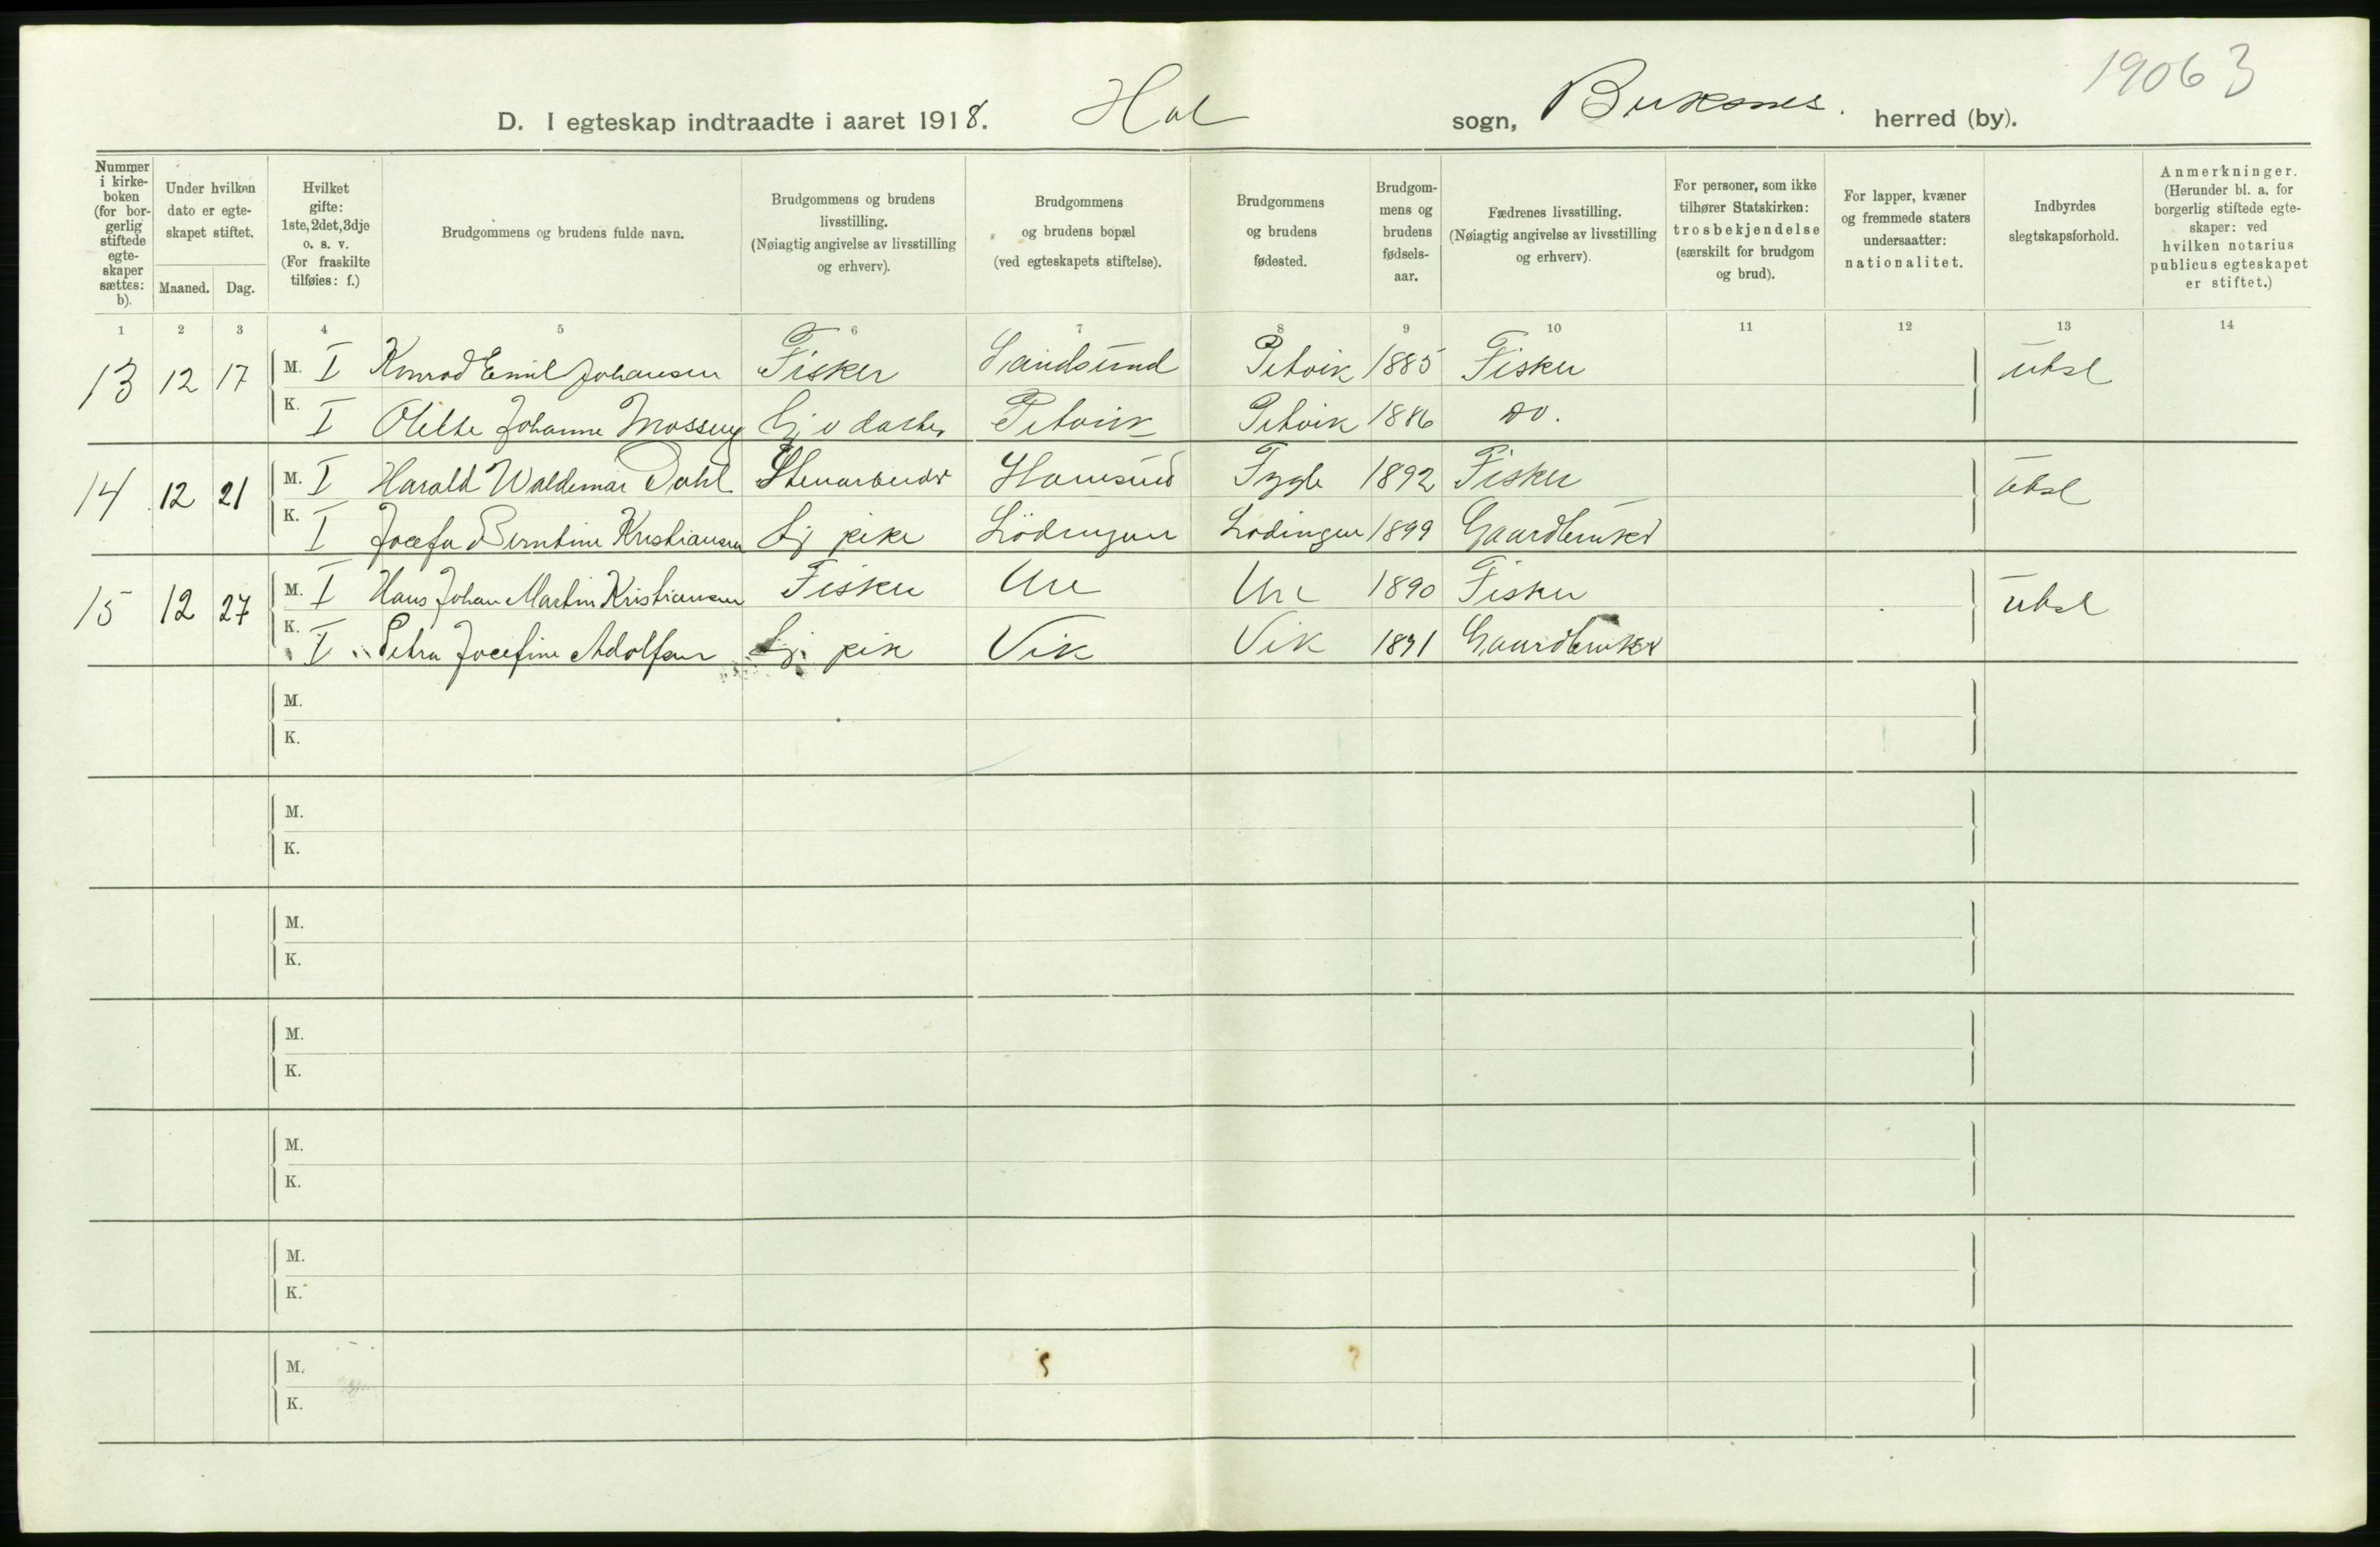 19063
D. I egteskap indtraadte i aaret 1918. Hol sogn, Buksnes. herred (by).
Nummer i kirkeboken (for borgerlig stiftede egteskaper sættes: b).
Under hvilken dato er egteskapet stiftet.
Maaned. Dag.
Hvilket gifte: 1ste, 2det, 3dje o. s. v. (For fraskilte tilføies: f.)
Brudgommens og brudens fulde navn.
Brudgommens og brudens livsstilling. (Nøiagtig angivelse av livsstilling og erhverv).
Brudgommens og brudens bopæl (ved egteskapets stiftelse).
Brudgommens og brudens fødested.
Brudgommens og brudens fødselsaar.
Fædrenes livsstilling. (Nøiagtig angivelse av livsstilling og erhverv).
For personer, som ikke tilhører Statskirken: trosbekjendelse (særskilt for brudgom og brud).
For lapper, kvæner og fremmede staters undersaatter: nationalitet.
Indbyrdes slegtskapsforhold.
Anmerkninger. (Herunder bl. a. for borgerlig stiftede egteskaper: ved hvilken notarius publicus egteskapet er stiftet.)
1 2 3 4 5 6 7 8 9 10 11 12 13 14
13 12 17 M. I Konrad Emil Johansen Fisker Sandsund Petvik 1885 Fisker ubsl
K. I Olette Johanne Mosseng Gj v datter Petvik Petvik 1886 do.
14 12 21 M. I Harald Waldemar Dahl Stenarbeider Fygle 1892 Fisker ubsl
K. I Josefa Berntine Kristiansen pike Lödingen Lödingen 1899 Gaardbruker
15 12 27 M. I Hans Johan Martin Kristiansen Fisker Ure Ure 1890 Fisker ubsl
K. I Petra Josefine Adolfsen pike Vik Vik 1891 Gaardbruker
M.
K.
M.
K.
M.
K.
M.
K.
M.
K.
M.
K.
M.
K.